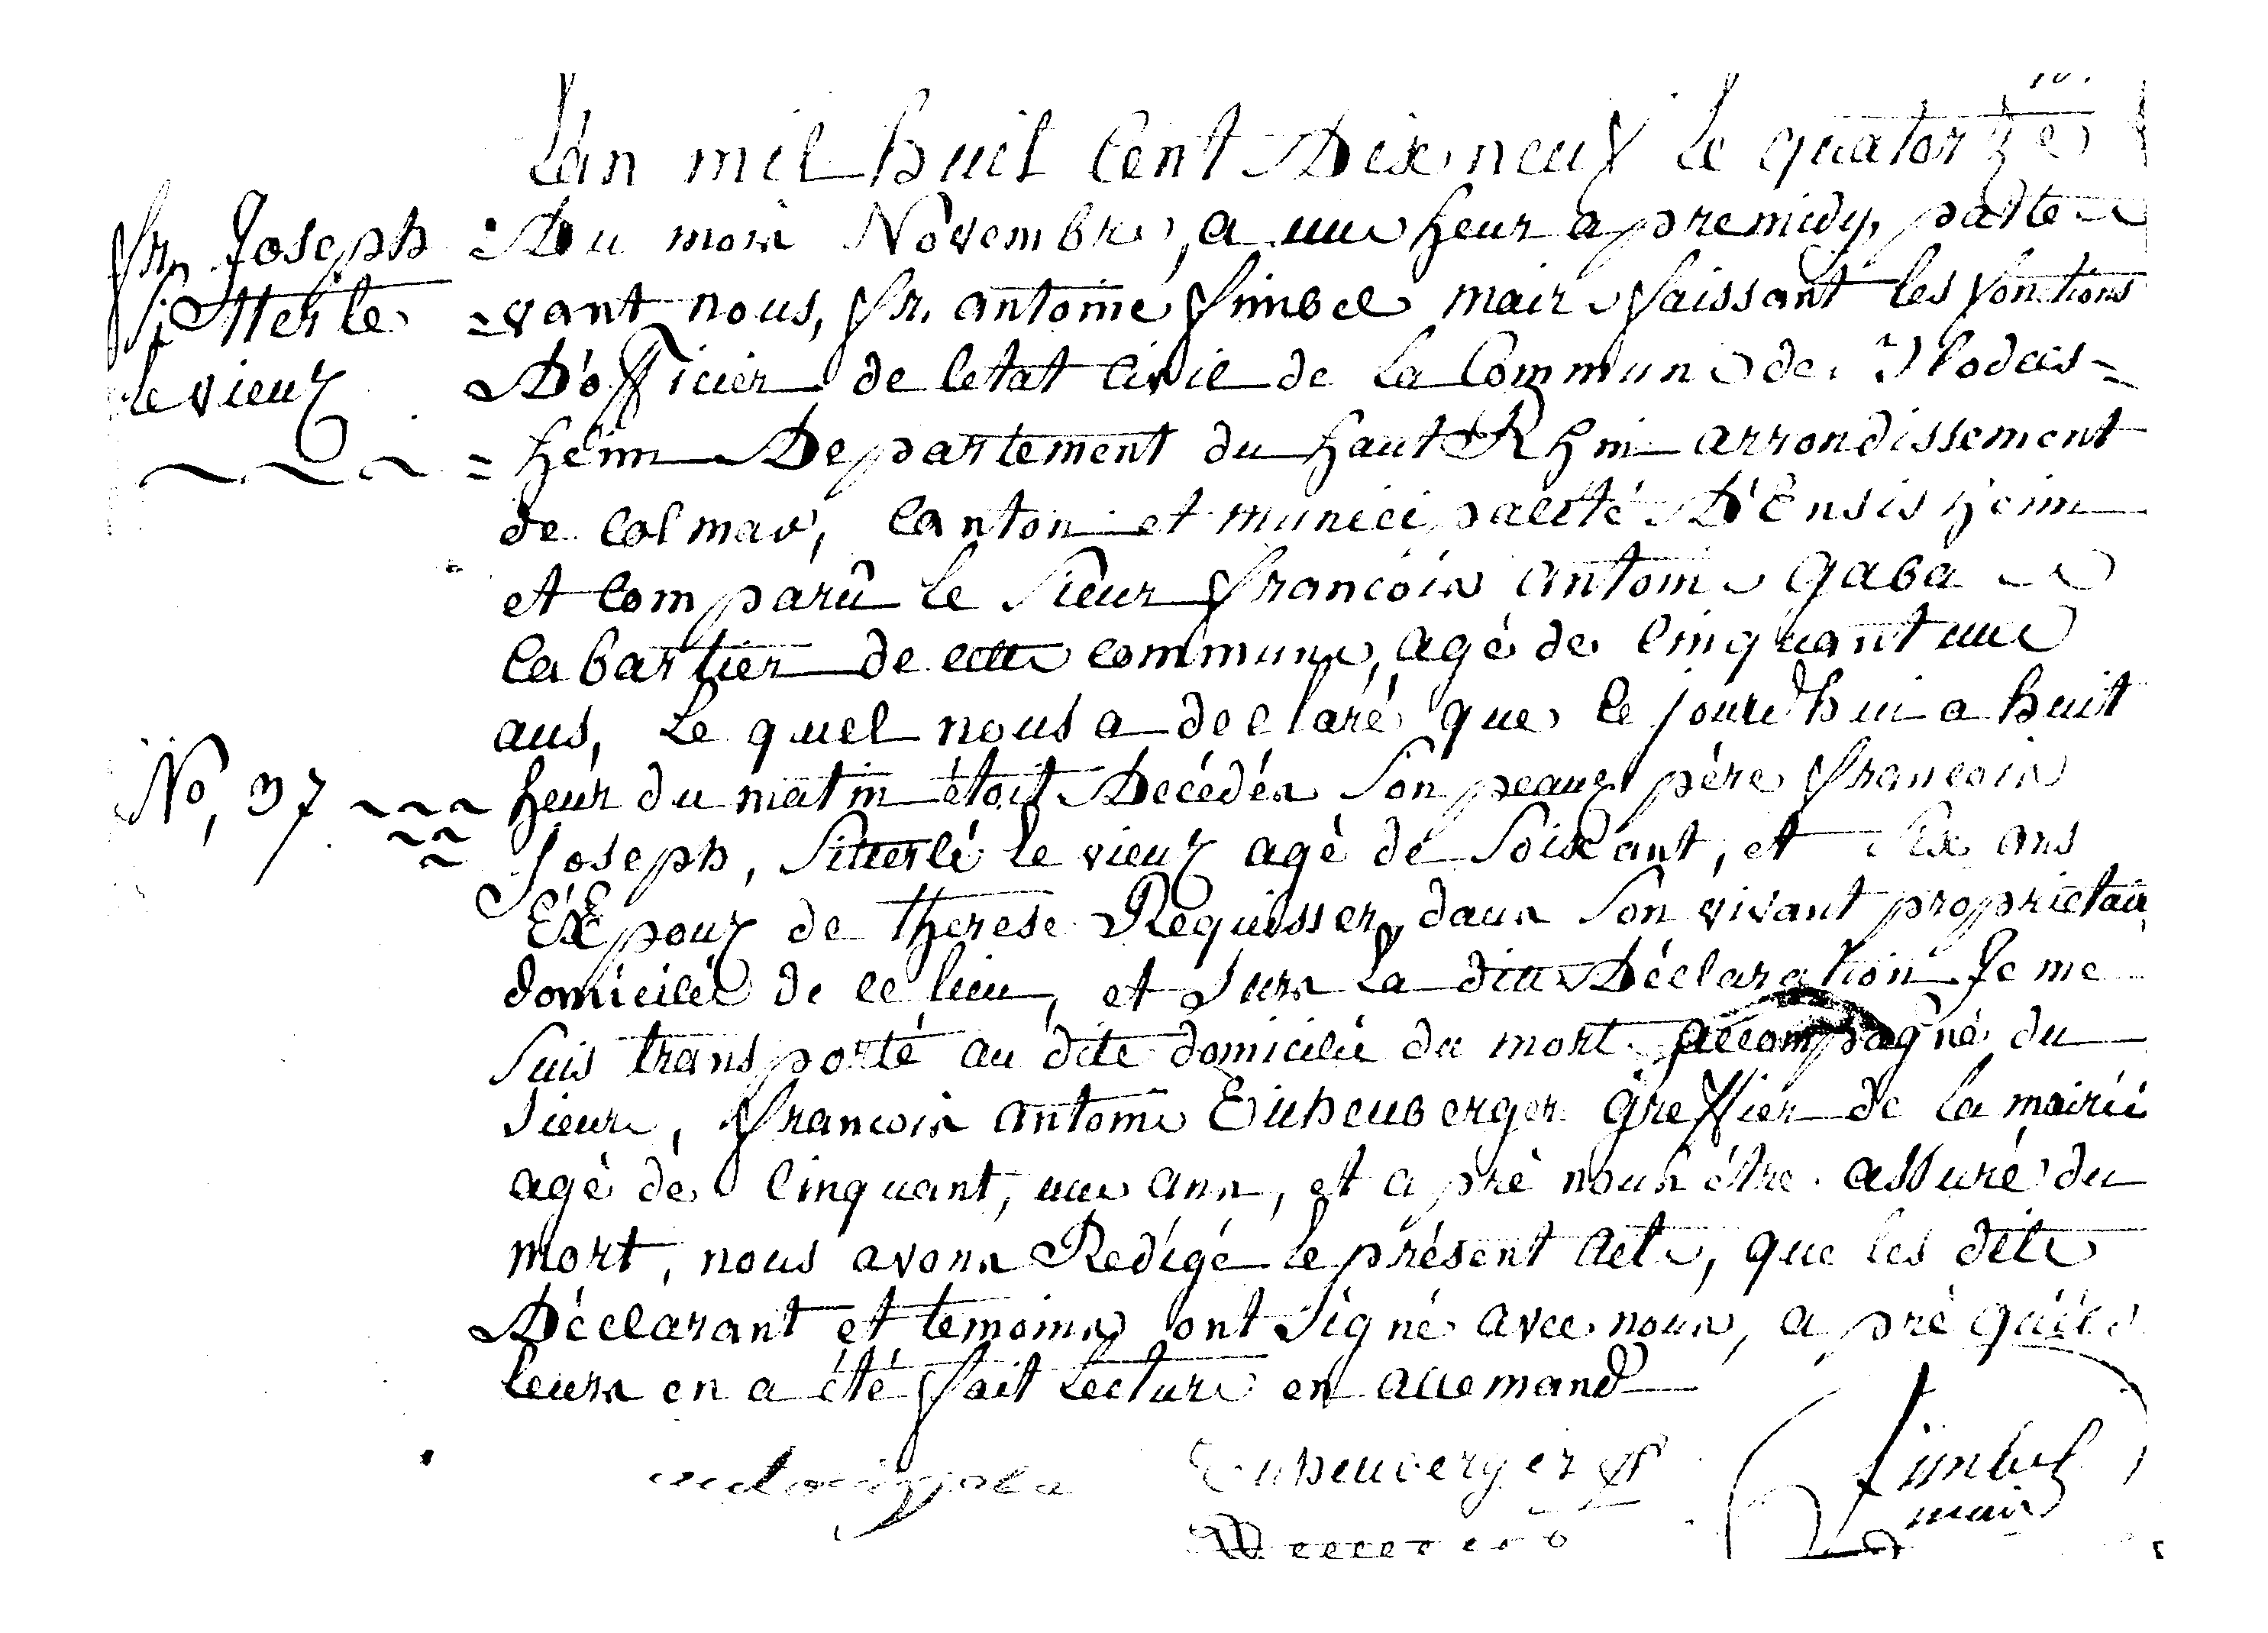 L'an mil huit Cent Dix neuf le quatorze
Fr. Joseph
Sitterle
le vieux
Du mois Novembre, a une heur apremidy, parde=
=vant nous, Fr. antoine Fimbel mair faissant les fonctions
D'officier de letat Civil de la Commune de
=heim Departement du haut Rhin arrondissement
de Colmar, Canton et municipalité D'Ensisheim
et Comparû le Sieur François Antoine Gaba
Cabartier de cette commune, agé de Cinquant une
ans, Le quel nous a declaré que le jourd'hui a huit
No, 37
heur du matin étoit Décédés Son peaux pére Francois
Joseph, Sitterlé le vieux agé de Soixant, et Six ans
ÉxEpoux de therese Requisser, dans Son vivant proprietair
domicilié de ce lieu, et Surs la ditte Déclaration Je me
Suis transporté au dite domicilié du mort accompagné du
Sieur, Francois antoine Euheuberger greffier de la mairié
agé de Cinquant, une ans, et a prè nous étre assuré du
mort, nous avons Redigé le présent Acte, que les dits
Déclarant et temoins ont Signé avec nous, a prè
leurs en a été fait Lecture en allemand
Fimbel
mair